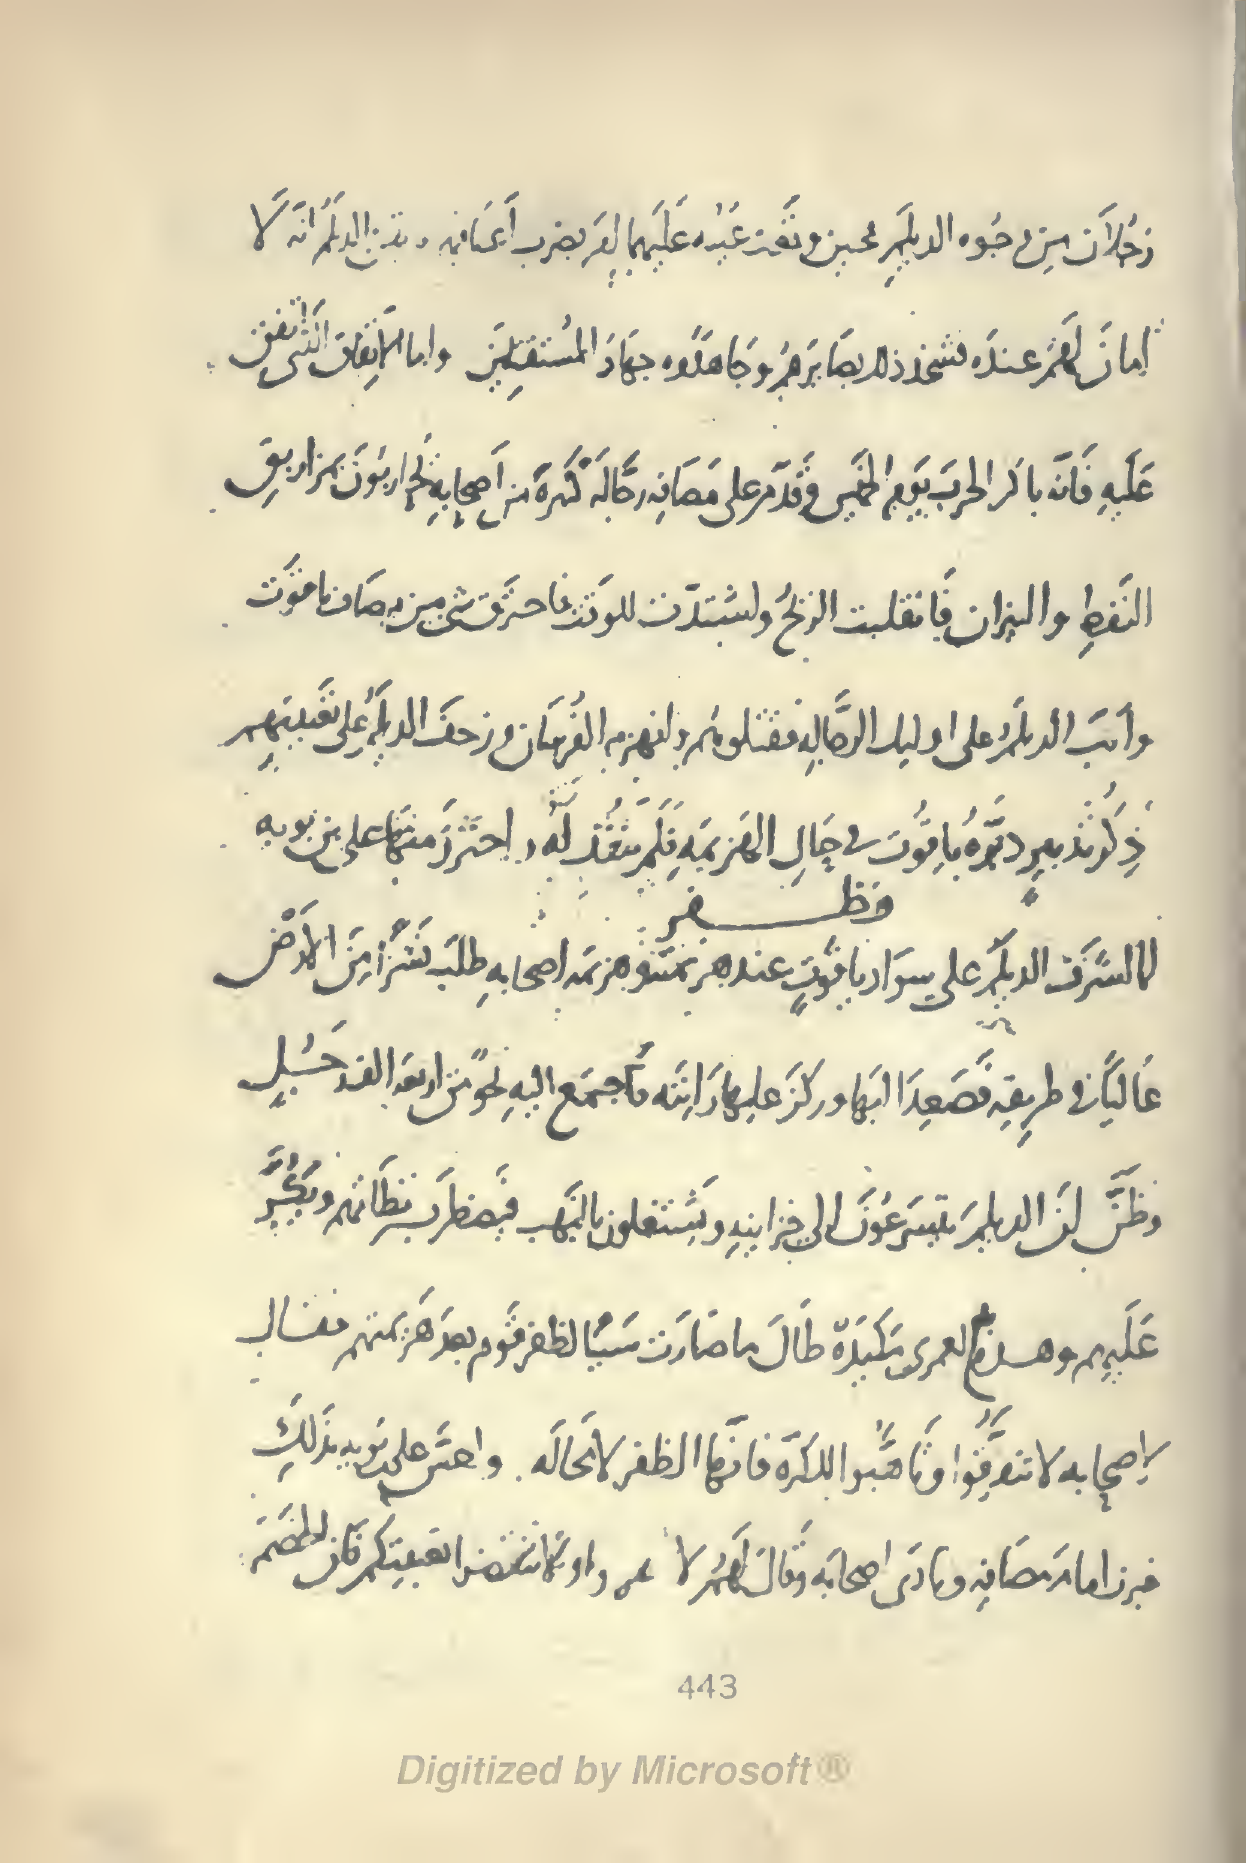 رجلان من وجوه الديلم وتقدم عليهما بضرب أعناقهم وتيقن الديلم انه لا
امان لهم عنده فشحذ ذلك بصائرهم وجاهدوه جهاد المستقتلين واما الاتفاق الذى اتفق
عليه فانه باكر الحرب يوم الخميس وقدم على مصافه رجالة كثيرة من اصحابه يحاربون بمزاريق
النفط والنيران فانقلبت الريح واشتدت للوقت فاحترق شى من مصاف ياقوت
واكب الديلم على اوليك الرجالة فقتلوهم وانهزم الفرسان وزحف الديلم على تعبيتهم
ذكر تدبير دبره ياقوت فى حال الهزيمة فلم ينفذ له واحترز منها على بن بويه
وظفر
لما اشرف الديلم على سواد ياقوت عند هزيمته وهزيمة اصحابه طلب نشزا من الارض
عاليا فى طريقه فصعد اليها وركز عليها رايته فاجتمع اليه نحو من اربعة الف رجل
وظن ان الديلم يتسرعون الى خزاينه ويشتغلون بالنهب فيضطرب نظامهم ويكر
عليهم وهذه لعمرى مكيدة طال ما صارت سببا لظفر قوم بعد هزيمتهم فقال
لاصحابه لا تتفرقوا وتاهبوا للكرة فانها الظفر لا محالة واحس على بن بويه بذلك
فبرز امام مصافه ونادى اصحابه وقال لهم لا ولا تنقضوا تعبيتكم فان الخصم
443
Digitized by Microsoft®